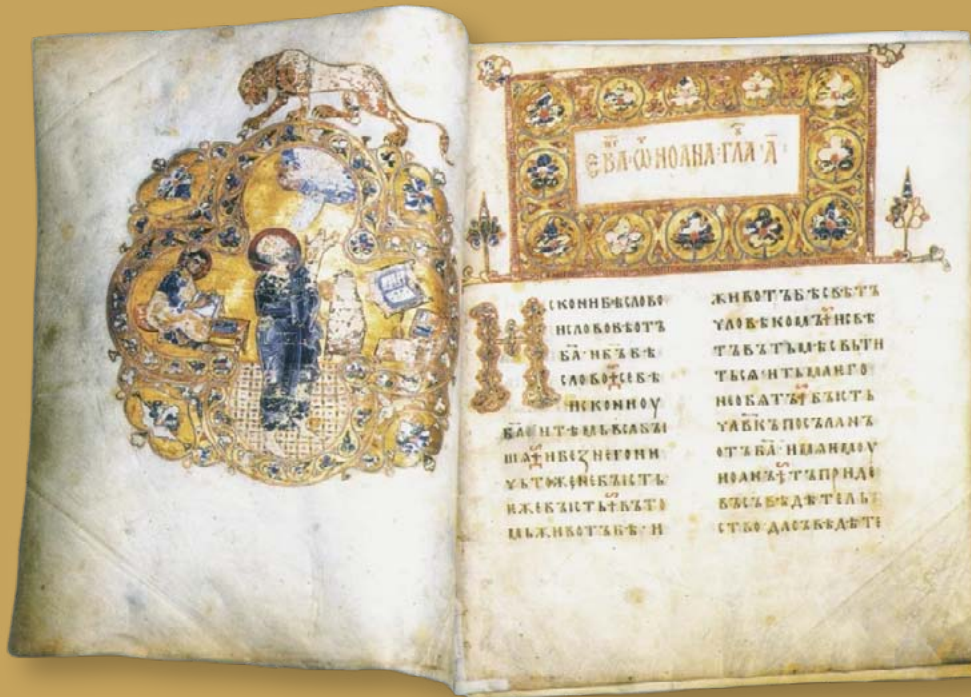 ЕВАⷢ҇ · Ѿ ИОАНА · ГЛАⷡ҇ · А҃ ·
ИСКОНИ БѢ СЛОВО
И СЛОВО БѢ ОТЪ
Б҃А · И Б҃Ъ БѢ
СЛОВО · СЕ БѢ
ИСКОНИ ОУ
Б҃А · И ТѢМЬ ВСА БЫ
ША · И БЕЗ НЕГО НИ
ЧЬТОЖЕ НЕ БЫСТЬ ·
ЕЖЕ БЫСТЬ · ВЪ ТО
МЬ ЖИВОТЪ БѢ · И
ЖИВОТЪ БѢ СВѢТЪ
ЧЛОВѢКОМЪ · И СВѢ
ТЪ ВЪ ТЬМѢ СВЬТИ
ТЬСѦ · И ТЬМА ѤГО
НЕ ОБѦТЪ · БЫСТЬ
ЧЛ҃ВКЪ ПОСЪЛАНЪ
ОТЪ Б҃А · ИМѦ ѤМОУ
ИОАНЪ · ТЪ ПРИДЕ
ВЪ СЪВѢДѢТЕЛЬ
СТВО · ДА СЪВѢДѢТЕ